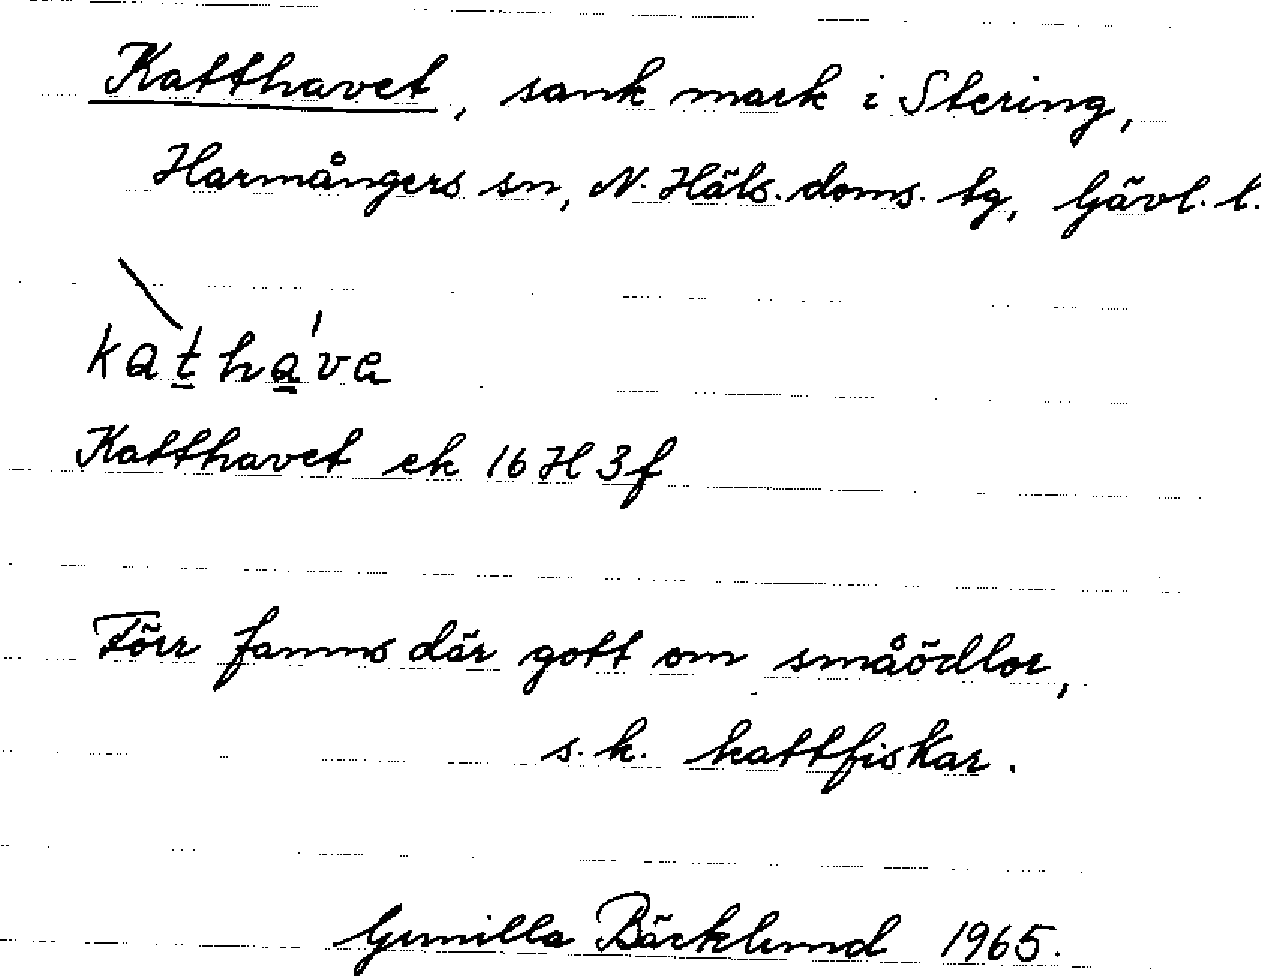 Katthavet, sank mark i Stering,
Harmångers sn, N. Häls. doms. tg, Gävl. l.
kathava
Katthavet ek 16 H 3 f
Förr fanns där gott om småödlor,
s.k. kattfiskar.
Gunilla Bäcklund 1965.